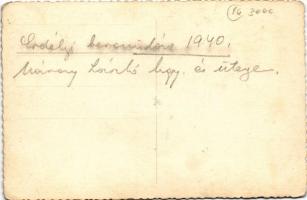 Ft 3000
Erdélyi bevonulás 1940.
László hgy. és ütege.